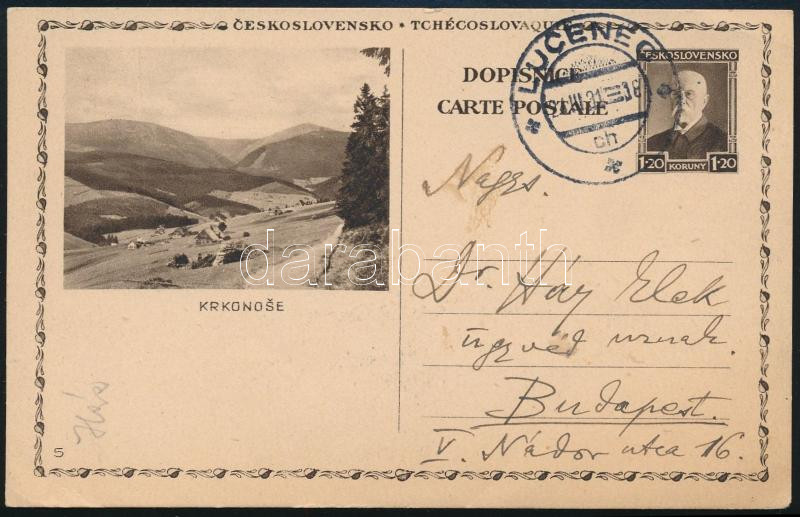 ČESKOSLOVENSKO • TCHÉCOSLOVAQUIE
LUČENEC
III 31 18
ch
ČESKOSLOVENSKO
DOPISNICE
CARTE POSTALE
1·20 KORUNY 1·20
Nags.
Dr. Háy Elek
ügyvéd urnak.
Budapest.
V. Nádor utca 16.
KRKONOŠE
5
darabanth